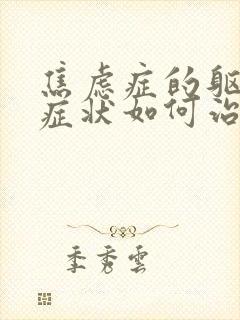 焦虑症的躯
症状如何治
季秀雲